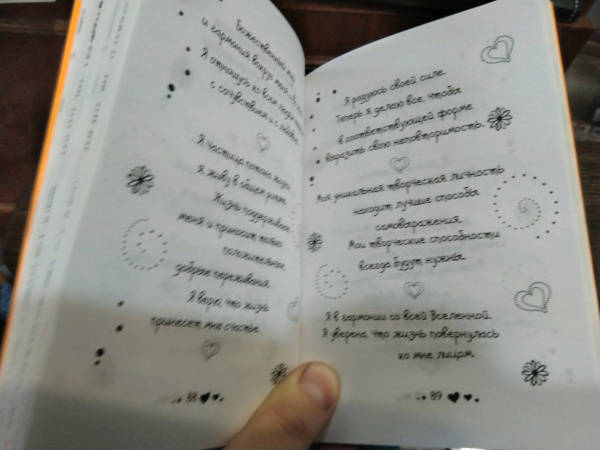 Божественный мир
и гармония вокруг меня
Я отношусь ко всем людям
с сочувствием и с любовью.
Я частица потока жизни.
Я живу в общем ритме.
Жизнь поддерживает
меня и приносит только
положительные,
добрые переживания.
Я верю, что жизнь
принесет мне счастье.
88
Я радуюсь своей силе.
Теперь я делаю все, чтобы
в соответствующей форме
выразить свою неповторимость.
Моя уникальная творческая личность
находит лучшие способы
самовыражения.
Мои творческие способности
всегда будут нужны.
Я в гармонии со всей Вселенной.
Я уверена, что жизнь повернулась
ко мне лицом.
89